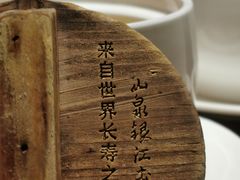 山泉银江
来自世界长寿之